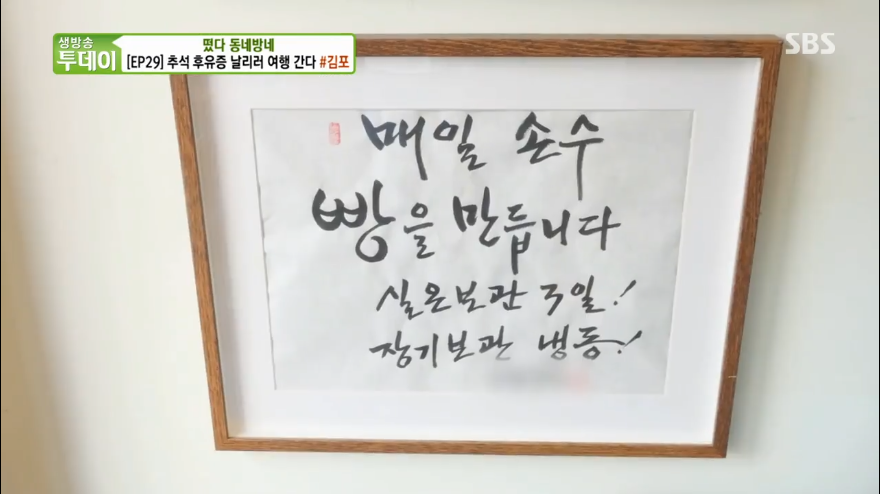 생방송
투데이
떴다 동네방네
[EP29] 추석 후유증 날리러 여행 간다 #김포
SBS
매일 손수
빵을 만듭니다
실온보관 3일!
장기보관 냉동!